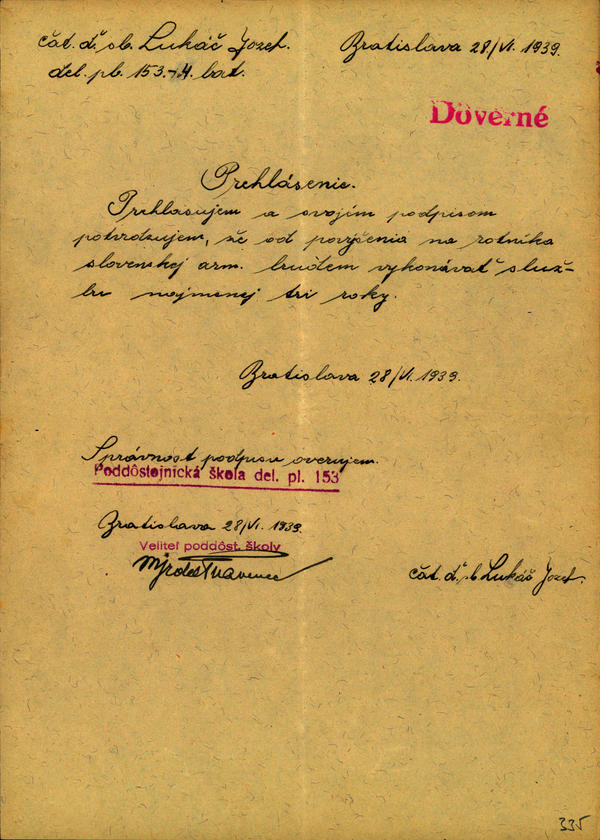 čat. ď. sb. Lukáč Jozef.
Bratislava 28/VI. 1939.
del. pb. 153.-4. bat.
Dôverné
Prehlásenie.
Prehlasujem a svojím podpisom
potvrdzujem, že od povýšenia na rotníka
slovenskej arm. budem vykonávať služ-
bu najmenej tri roky.
Bratislava 28/VI. 1939.
Správnosť podpisu overujem.
Poddôstojnická škola del. pl. 153
Bratislava 28/VI. 1939.
Veliteľ poddôst. školy
čat. ď. sb Lukáč Jozef.
335